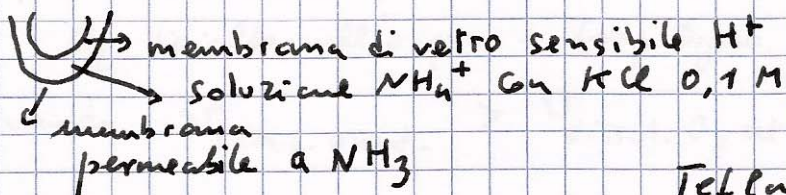 membrana di vetro sensibile H⁺
soluzione NH₄⁺ con KCl 0,1 M
membrana
permeabile a NH₃